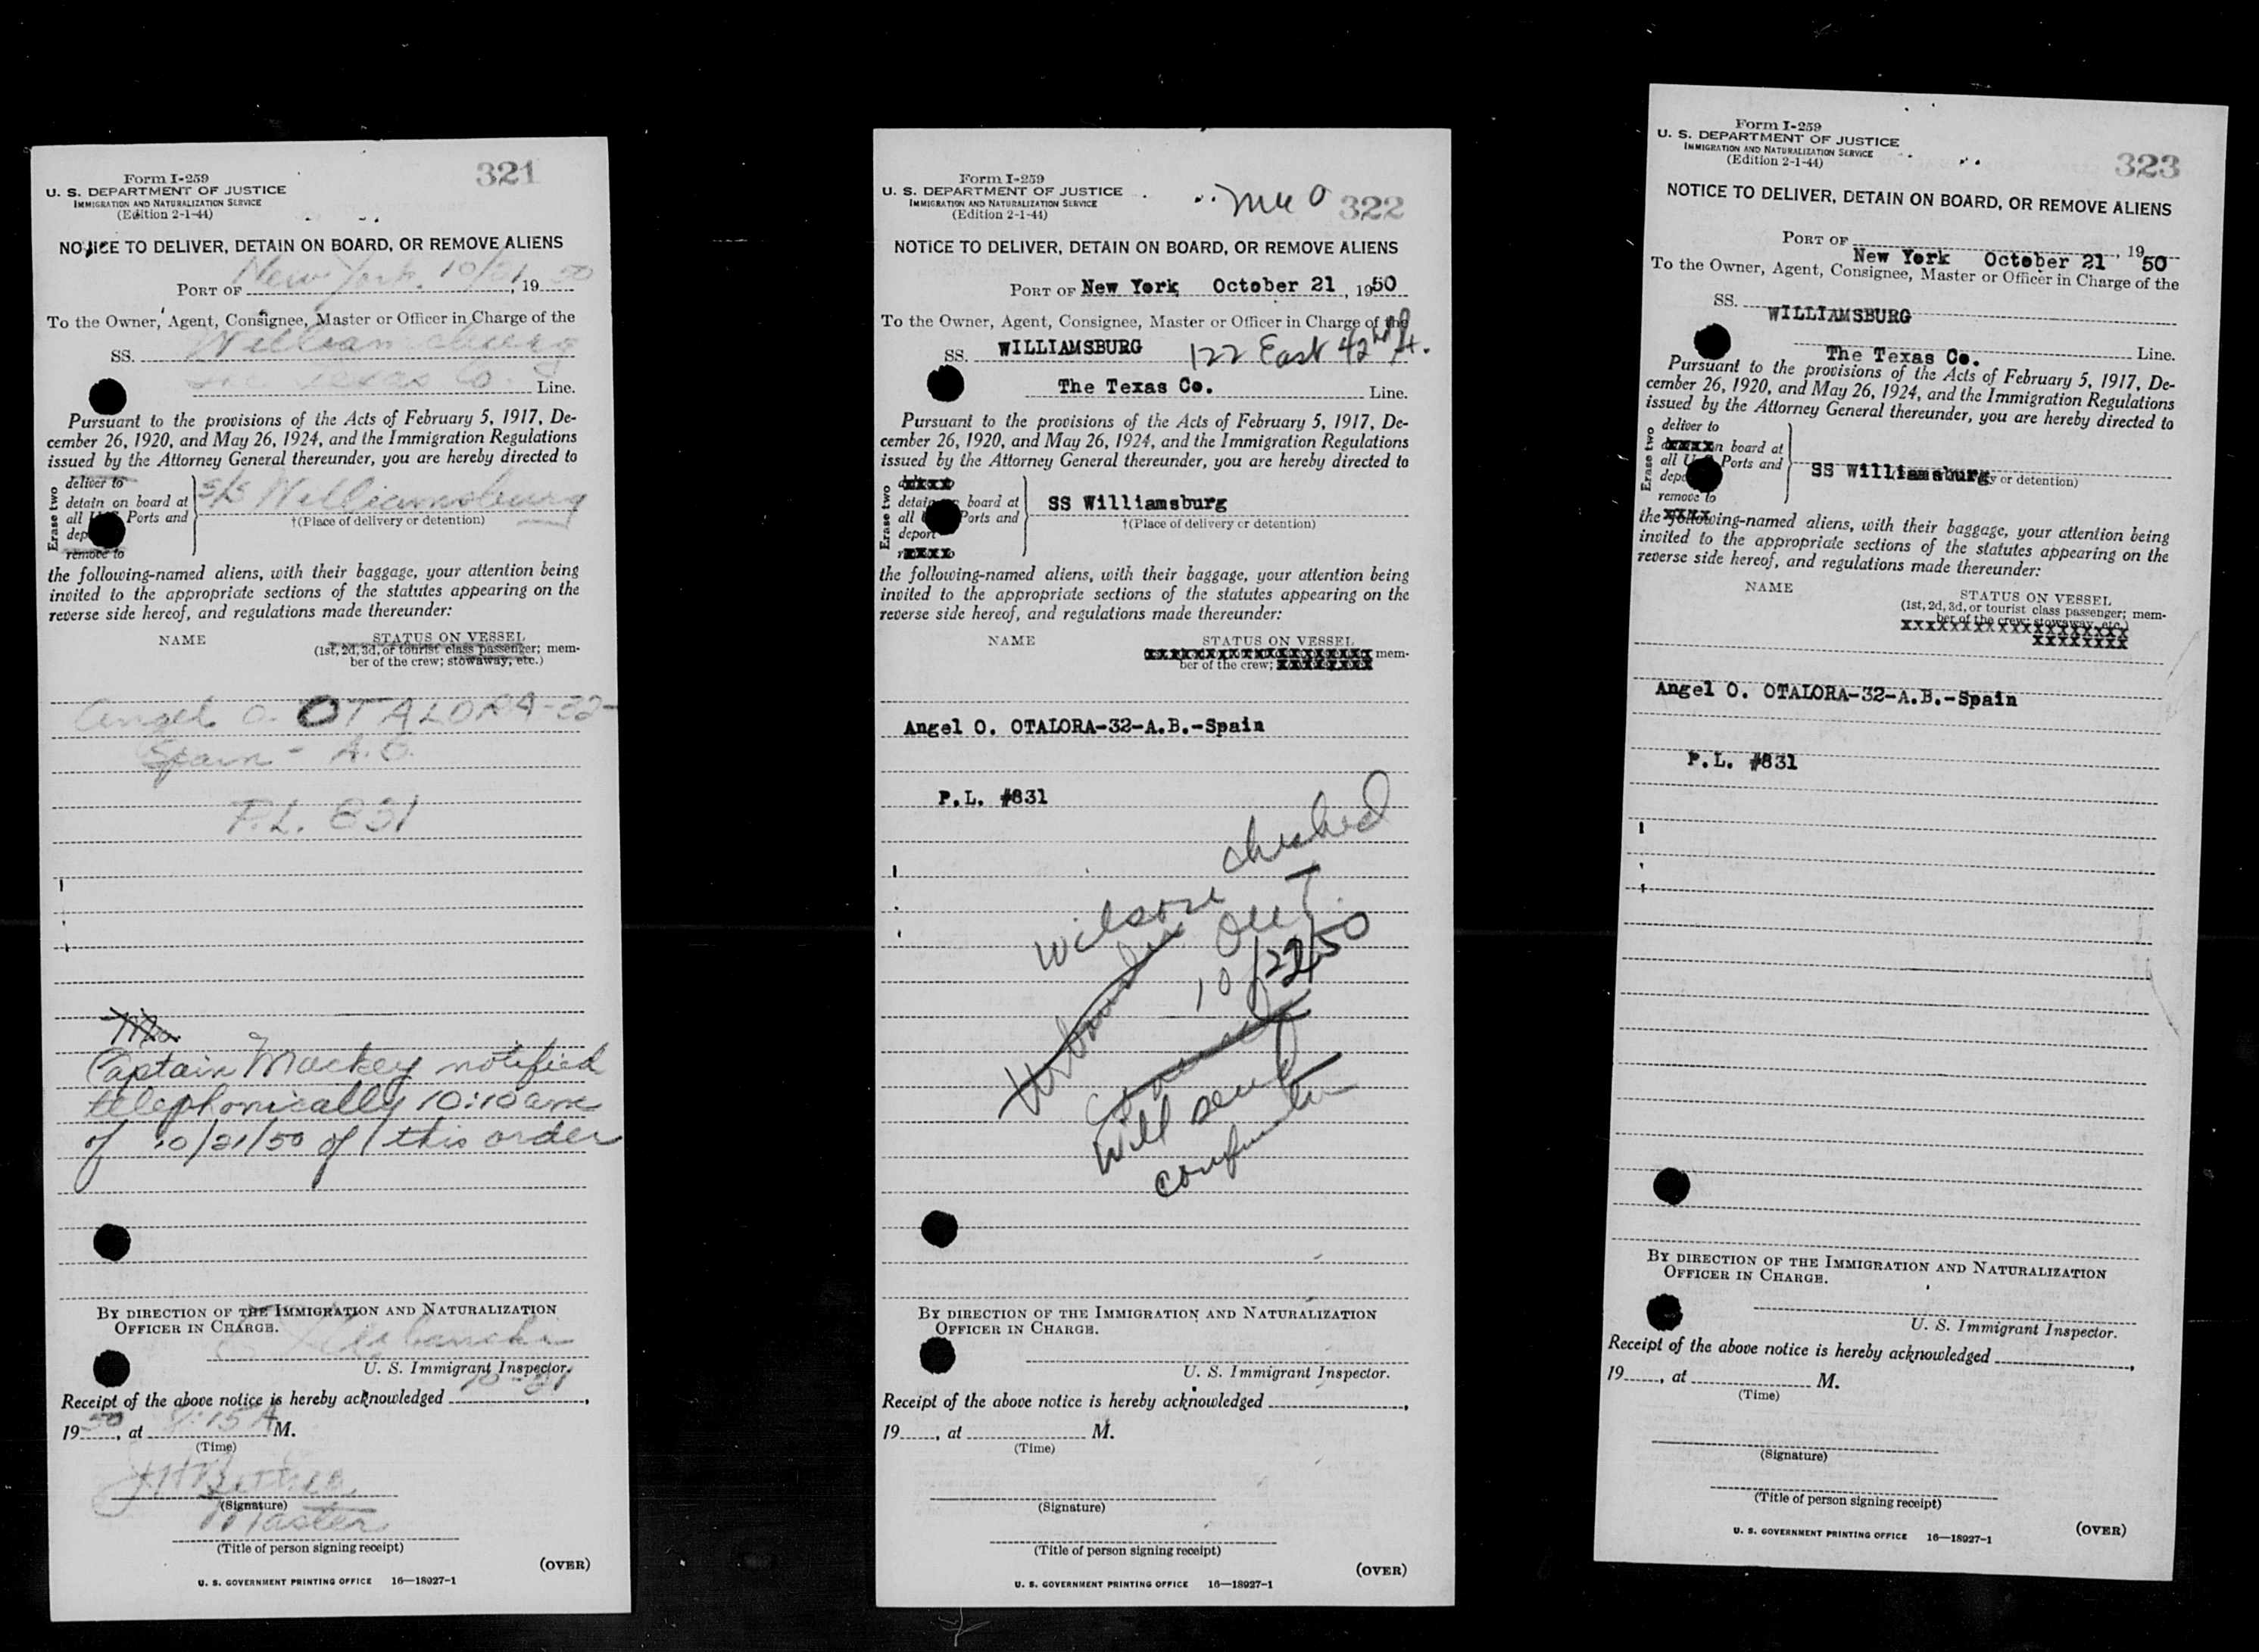 Form I-259
U. S. DEPARTMENT OF JUSTICE
IMMIGRATION AND NATURALIZATION SERVICE
(Edition 2-1-44)
321
NOTICE TO DELIVER, DETAIN ON BOARD, OR REMOVE ALIENS
PORT OF New York, 10/21, 1950
To the Owner, Agent, Consignee, Master or Officer in Charge of the
SS. Williamsburg
The Texas Co. Line.
Pursuant to the provisions of the Acts of February 5, 1917, De-
cember 26, 1920, and May 26, 1924, and the Immigration Regulations
issued by the Attorney General thereunder, you are hereby directed to
Erase two
deliver to
detain on board at
all Ports and
dep
remove to
S/S Williamsburg
†(Place of delivery or detention)
the following-named aliens, with their baggage, your attention being
invited to the appropriate sections of the statutes appearing on the
reverse side hereof, and regulations made thereunder:
NAME
STATUS ON VESSEL
(1st, 2d, 3d, or tourist class passenger; mem-
ber of the crew; stowaway, etc.)
Angel O. OTALORA-32-
Spain - A.B.
P.L. 831
Captain Mackey notified
telephonically 10:10 am
of 10/21/50 of this order
BY DIRECTION OF THE IMMIGRATION AND NATURALIZATION
OFFICER IN CHARGE.
U. S. Immigrant Inspector.
Receipt of the above notice is hereby acknowledged 10-21,
1950, at 9:15 A M.
(Time)
(Signature)
Master
(Title of person signing receipt)
(OVER)
U. S. GOVERNMENT PRINTING OFFICE 16—18927-1
Form I-259
U. S. DEPARTMENT OF JUSTICE
IMMIGRATION AND NATURALIZATION SERVICE
(Edition 2-1-44)
322
NOTICE TO DELIVER, DETAIN ON BOARD, OR REMOVE ALIENS
PORT OF New York October 21, 1950
To the Owner, Agent, Consignee, Master or Officer in Charge of the
SS. WILLIAMSBURG 122 East 42nd St.
The Texas Co. Line.
Pursuant to the provisions of the Acts of February 5, 1917, De-
cember 26, 1920, and May 26, 1924, and the Immigration Regulations
issued by the Attorney General thereunder, you are hereby directed to
Erase two
xxxxx
detain board at
all Ports and
deport
xxxxx
SS Williamsburg
†(Place of delivery or detention)
the following-named aliens, with their baggage, your attention being
invited to the appropriate sections of the statutes appearing on the
reverse side hereof, and regulations made thereunder:
NAME
STATUS ON VESSEL
mem-
ber of the crew;
Angel O. OTALORA-32-A.B.-Spain
P.L. #831
Wilson checked
out
10/22/50
will send
BY DIRECTION OF THE IMMIGRATION AND NATURALIZATION
OFFICER IN CHARGE.
U. S. Immigrant Inspector.
Receipt of the above notice is hereby acknowledged
19, at M.
(Time)
(Signature)
(Title of person signing receipt)
(OVER)
U. S. GOVERNMENT PRINTING OFFICE 16—18927-1
Form I-259
U. S. DEPARTMENT OF JUSTICE
IMMIGRATION AND NATURALIZATION SERVICE
(Edition 2-1-44)
323
NOTICE TO DELIVER, DETAIN ON BOARD, OR REMOVE ALIENS
PORT OF New York October 21, 1950
To the Owner, Agent, Consignee, Master or Officer in Charge of the
SS. WILLIAMSBURG
The Texas Co. Line.
Pursuant to the provisions of the Acts of February 5, 1917, De-
cember 26, 1920, and May 26, 1924, and the Immigration Regulations
issued by the Attorney General thereunder, you are hereby directed to
Erase two
deliver to
xxxxxn board at
all Ports and
depo
remove to
SS Williamsburg
or detention)
the following-named aliens, with their baggage, your attention being
invited to the appropriate sections of the statutes appearing on the
reverse side hereof, and regulations made thereunder:
NAME
STATUS ON VESSEL
(1st, 2d, 3d, or tourist class passenger; mem-
ber of the crew; stowaway, etc.)
Angel O. OTALORA-32-A.B.-Spain
P.L. #831
BY DIRECTION OF THE IMMIGRATION AND NATURALIZATION
OFFICER IN CHARGE.
U. S. Immigrant Inspector.
Receipt of the above notice is hereby acknowledged
19, at M.
(Time)
(Signature)
(Title of person signing receipt)
(OVER)
U. S. GOVERNMENT PRINTING OFFICE 16—18927-1